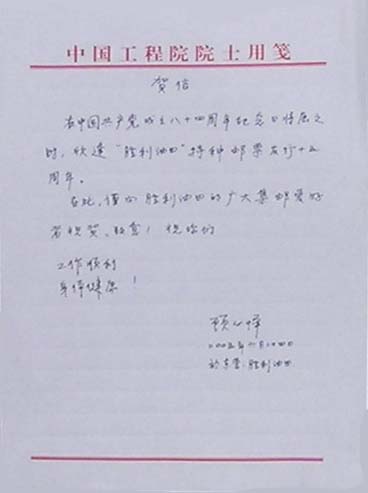 中国工程院院士用笺
贺信
在中国共产党成立八十四周年纪念日将届之
时，欣逢“胜利油田”特种邮票发行十五
周年。
在此，谨向胜利油田的广大集邮爱好
者祝贺、致意！祝你们
工作顺利
身体健康！
顾心怿
二〇〇五年六月二〇日
于东营·胜利油田